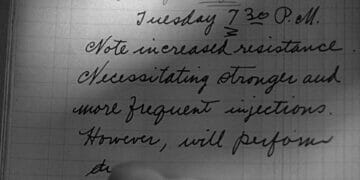 Tuesday 7 30 P.M.
Note increased resistance
Necessitating stronger and
more frequent injections.
However, will perform